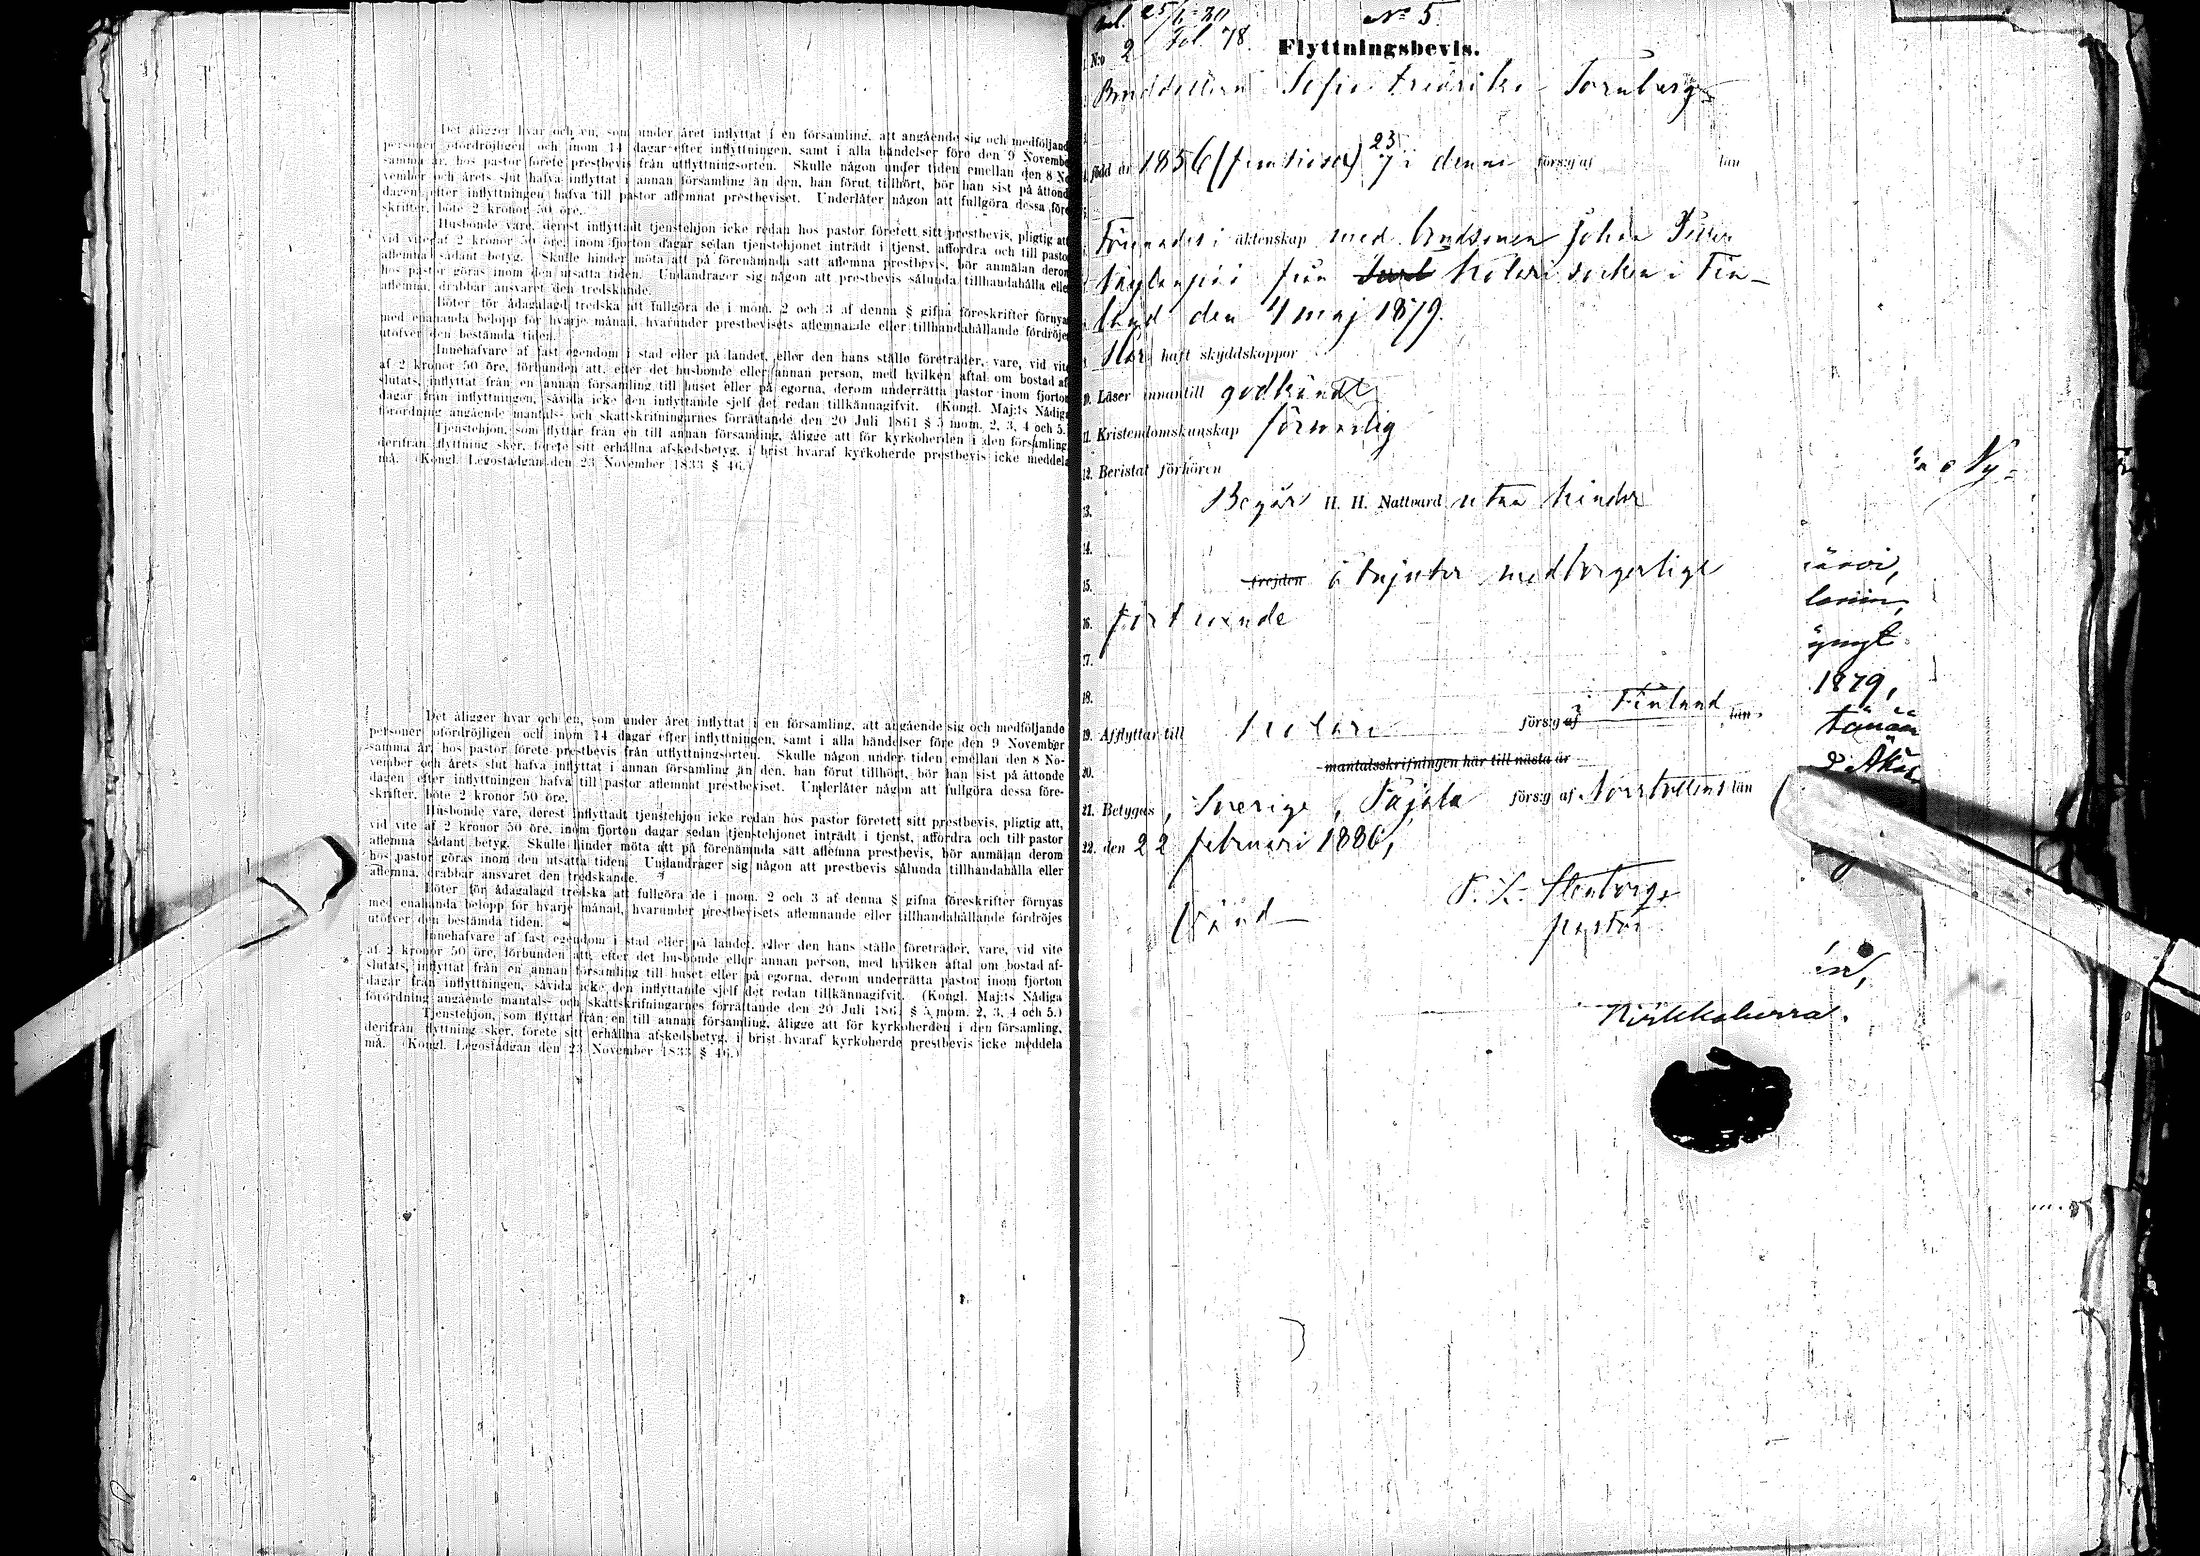 Det åligger hvar och en, som under året inflyttat i en församling, att angående sig och medföljand
personer ofördröjligen och inom 14 dagar efter inflyttningen, samt i alla händelser före den 9 Novembe
samma år, hos pastor förete prestbevis från utflyttningsorten. Skulle någon under tiden emellan den 8 No
vember och årets slut hafva inflyttat i annan församling än den, han förut tillhört, bör han sist på åttond
dagen efter inflyttningen hafva till pastor aflemnat prestbeviset. Underlåter någon att fullgöra dessa före
skrifter, böte 2 kronor 50 öre.
Husbonde vare, derest inflyttadt tjenstehjon icke redan hos pastor företett sitt prestbevis, pligtig att
vid vite af 2 kronor 50 öre, inom fjorton dagar sedan tjenstehjonet inträdt i tjenst, affordra och till pasto
aflemna sådant betyg. Skulle hinder möta att på förenämnda sätt aflemna prestbevis, bör anmälan derom
hos pastor göras inom den utsatta tiden. Undandrager sig någon att prestbevis sålunda tillhandahålla elle
aflemna, drabbar ansvaret den tredskande.
Böter för ådagalagd tredska att fullgöra de i mom. 2 och 3 af denna § gifna föreskrifter förnyas
med enahanda belopp för hvarje månad, hvarunder prestbevisets aflemnande eller tillhandahållande fördröje
utöfver den bestämda tiden.
Innehafvare af fast egendom i stad eller på landet, eller den hans ställe företräder, vare, vid vite
af 2 kronor 50 öre, förbunden att, efter det husbonde eller annan person, med hvilken aftal om bostad af
slutats, inflyttat från en annan församling till huset eller på egorna, derom underrätta pastor inom fjorton
dagar från inflyttningen, såvida icke den inflyttande sjelf det redan tillkännagifvit. (Kongl. Maj:ts Nådiga
förordning angående mantals- och skattskrifningarnes förrättande den 20 Juli 1861 § 5 mom. 2, 3, 4 och 5.
Tjenstehjon, som flyttar från en till annan församling, åligge att för kyrkoherden i den församling,
derifrån flyttning sker, förete sitt erhållna afskedsbetyg, i brist hvaraf kyrkoherde prestbevis icke meddela
må. (Kongl. Legostadgan den 23 November 1833 § 46.)
Det åligger hvar och en, som under året inflyttat i en församling, att angående sig och medföljande
personer ofördröjligen och inom 14 dagar efter inflyttningen, samt i alla händelser före den 9 November
samma år, hos pastor förete prestbevis från utflyttningsorten. Skulle någon under tiden emellan den 8 No-
vember och årets slut hafva inflyttat i annan församling än den, han förut tillhört, bör han sist på åttonde
dagen efter inflyttningen hafva till pastor aflemnat prestbeviset. Underlåter någon att fullgöra dessa före-
skrifter, böte 2 kronor 50 öre.
Husbonde vare, derest inflyttadt tjenstehjon icke redan hos pastor företett sitt prestbevis, pligtig att,
vid vite af 2 kronor 50 öre, inom fjorton dagar sedan tjenstehjonet inträdt i tjenst, affordra och till pastor
aflemna sådant betyg. Skulle hinder möta att på förenämnda sätt aflemna prestbevis, bör anmälan derom
hos pastor göras inom den utsatta tiden. Undandrager sig någon att prestbevis sålunda tillhandahålla eller
aflemna, drabbar ansvaret den tredskande.
Böter för ådagalagd tredska att fullgöra de i mom. 2 och 3 af denna § gifna föreskrifter förnyas
med enahanda belopp för hvarje månad, hvarunder prestbevisets aflemnande eller tillhandahållande fördröjes
utöfver den bestämda tiden.
Innehafvare af fast egendom i stad eller på landet, eller den hans ställe företräder, vare, vid vite
af 2 kronor 50 öre, förbunden att, efter det husbonde eller annan person, med hvilken aftal om bostad af-
slutats, inflyttat från en annan församling till huset eller på egorna, derom underrätta pastor inom fjorton
dagar från inflyttningen, såvida icke den inflyttande sjelf det redan tillkännagifvit. (Kongl. Maj:ts Nådiga
förordning angående mantals- och skattskrifningarnes förrättande den 20 Juli 1861 § 5 mom. 2, 3, 4 och 5.)
Tjenstehjon, som flyttar från en till annan församling, åligge att för kyrkoherden i den församling,
derifrån flyttning sker, förete sitt erhållna afskedsbetyg, i brist hvaraf kyrkoherde prestbevis icke meddela
må. (Kongl. Legostadgan den 23 November 1833 § 46.)
No 5
N:o 2 Fol. 78
Flyttningsbevis.
Sofia Fredrika Fornberg
född år 1856 (femtiosex) 23/7 i denna förs:g af län
Förenades i äktenskap med Johan
från Kolari socken i Fin-
land den 4 maj 1879.
Har haft skyddskoppor
Läser innantill godkändt
11. Kristendomskunskap försvarlig
12. Bevistat förhören
13. Begår H. H. Nattvard utan hinder
14.
15. frejden åtnjuter medborgerligt
16. förtroende
17.
18.
19. Afflyttar till Kolari förs:g af i Finland län
20. mantalsskrifningen här till nästa år
21. Betygas, Sverige, Pajala förs:g af Norrbottens län
22. den 22 februari 1886,
Stenborg
pastor
Vänd
1879,